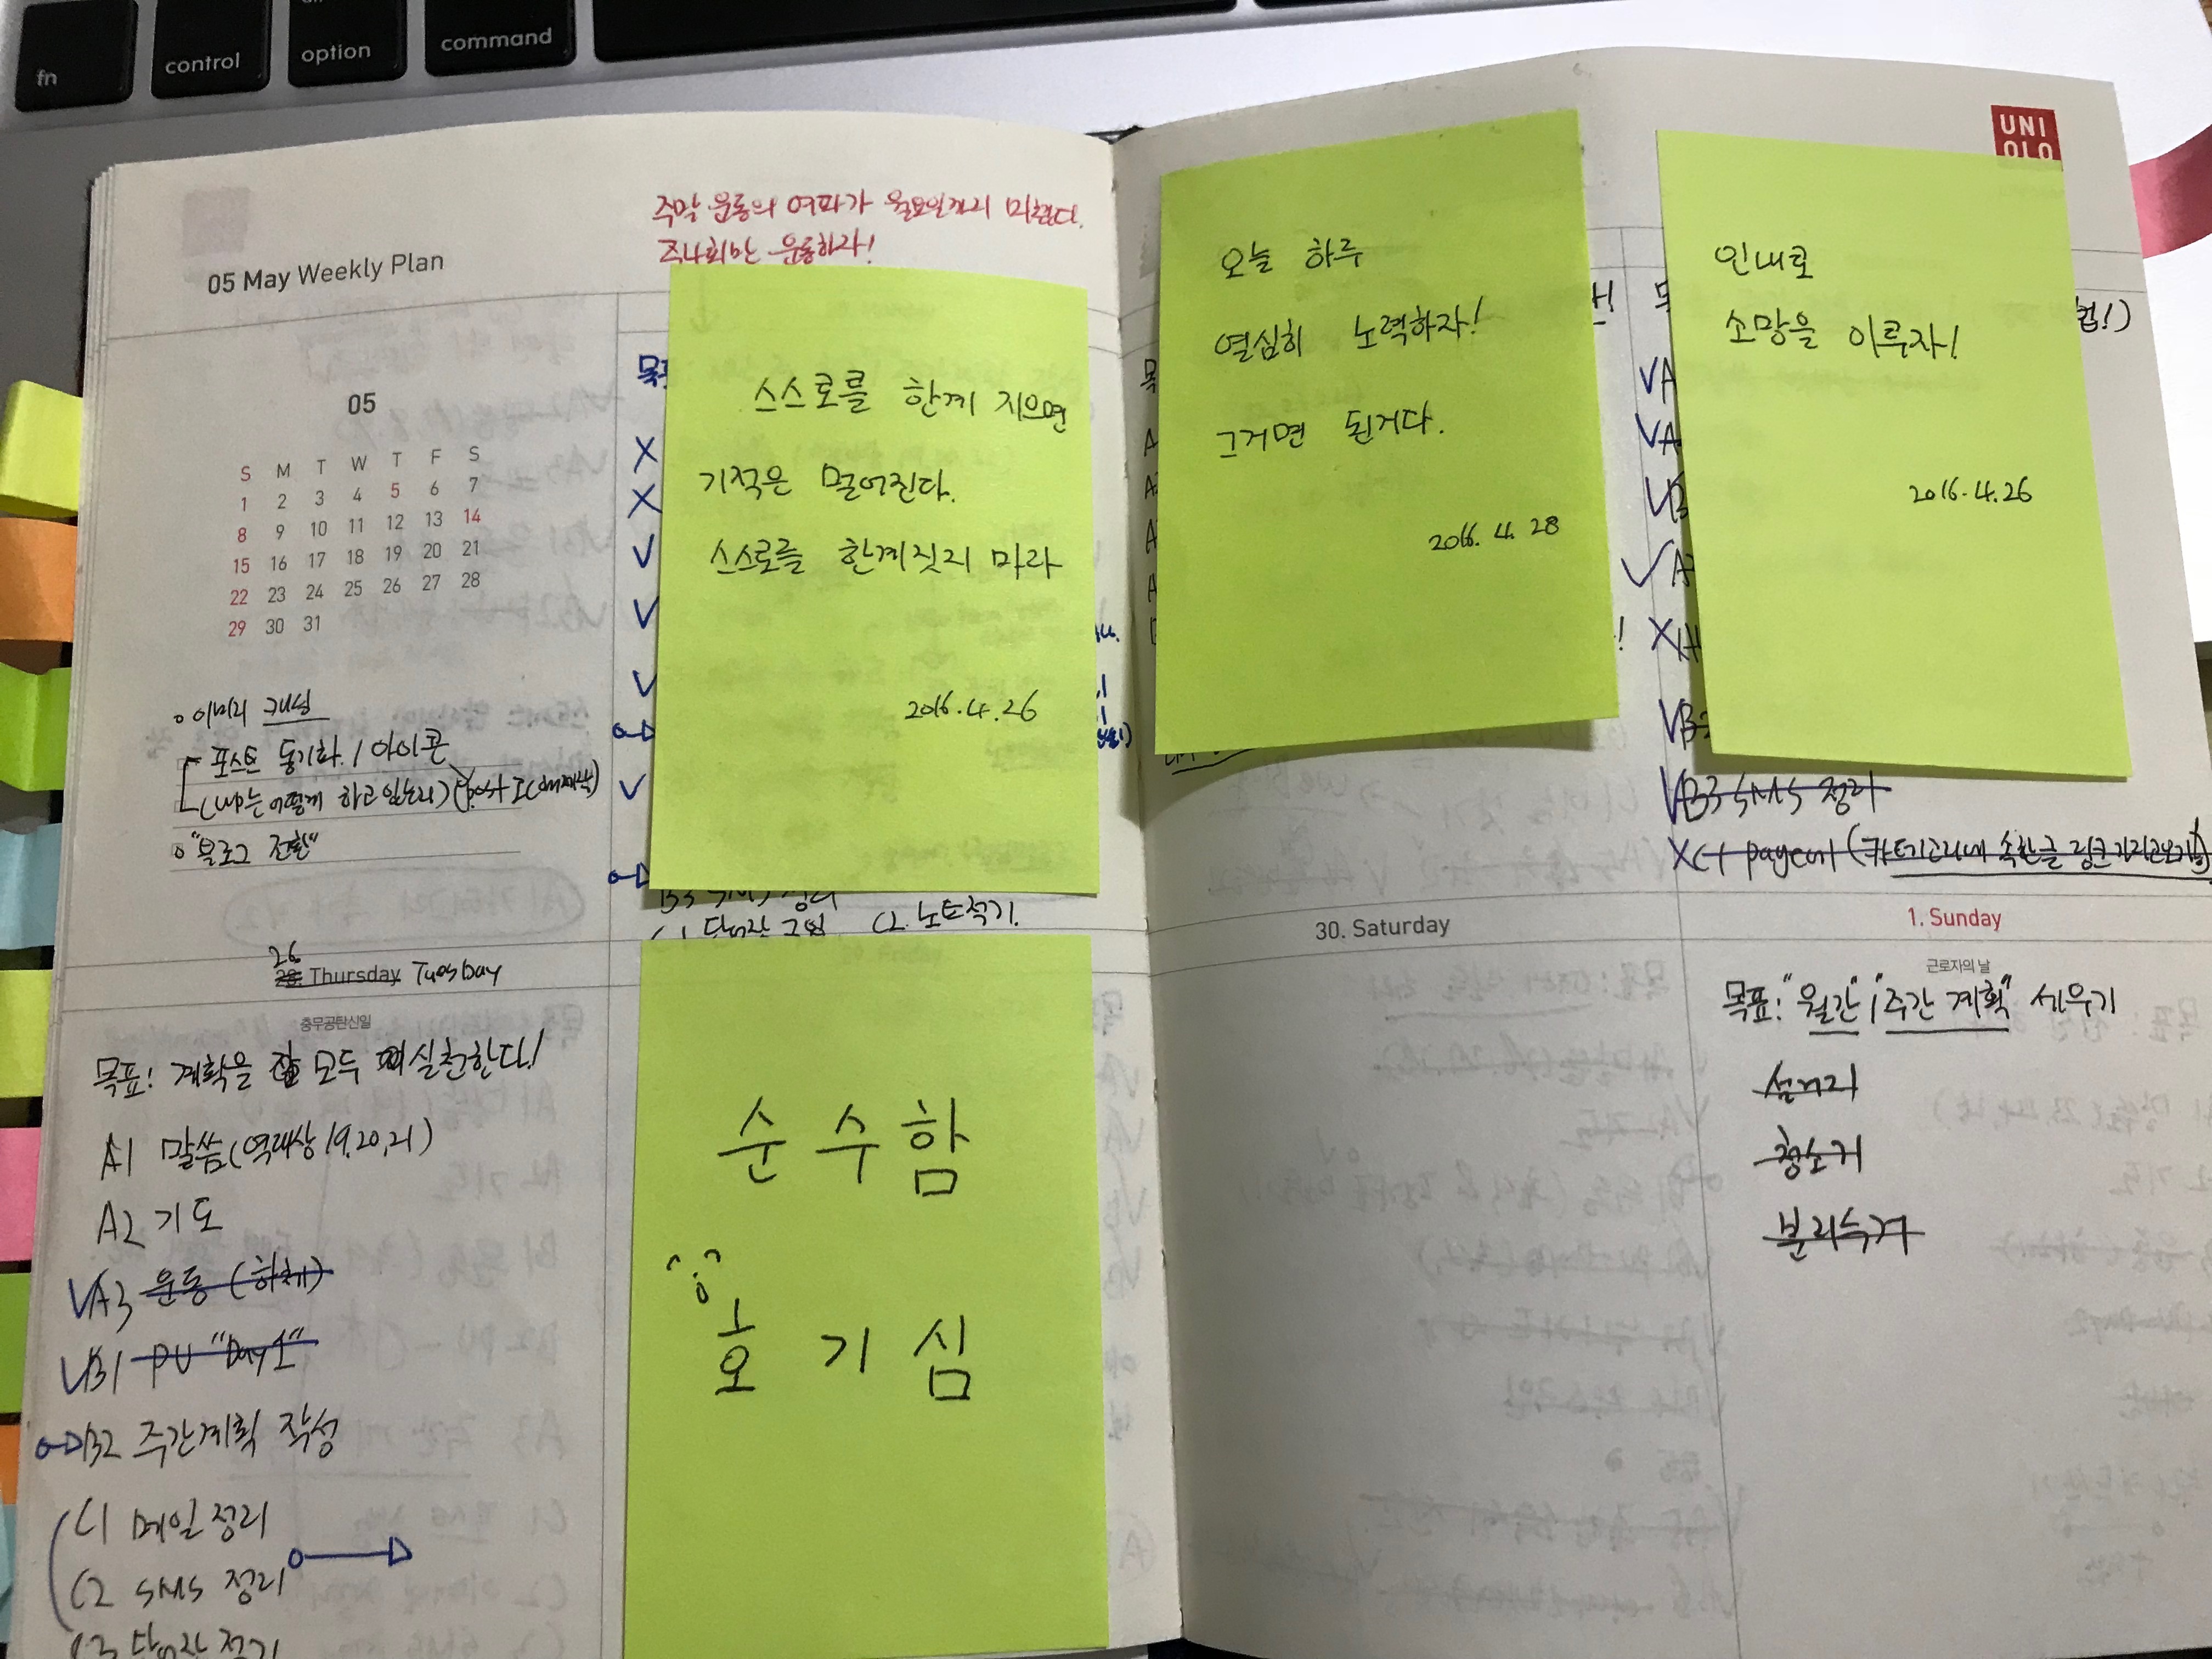 fn
control
option
command
UNI
QLO
05 May Weekly Plan
주말 운동의 여파가 월요일까지 미쳤다.
운동하자!
05
S M T W T F S
1 2 3 4 5 6 7
8 9 10 11 12 13 14
15 16 17 18 19 20 21
22 23 24 25 26 27 28
29 30 31
이미지 개성
포스트 동기화 / 아이콘
어떻게 하고 있는지)
"블로그 전환"
스스로를 한계 지으면
기적은 멀어진다.
스스로를 한계짓지 마라
2016.4.26
B3 SMS 정리
C1 단어장 C2. 노트적기.
오늘 하루
열심히 노력하자!
그거면 된거다.
2016. 4. 28
인내로
소망을 이루자!
2016.4.26
VA
VA
B3 SMS 정리
X C1 (카테고리내 속한글 링크
26
28. Thursday Tuesday
충무공탄신일
목표! 계획을 잘 모두 실천한다!
A1 말씀(역대상 19,20,21)
A2 기도
VA3 운동 (하체)
VB1 PU "Day1"
B2 주간계획 작성
C1 메일 정리
C2 SMS 정리
C3 단어장 적기
순수함
호기심
30. Saturday
1. Sunday
근로자의 날
목표: "월간", "주간 계획" 세우기
설거지
청소기
분리수거